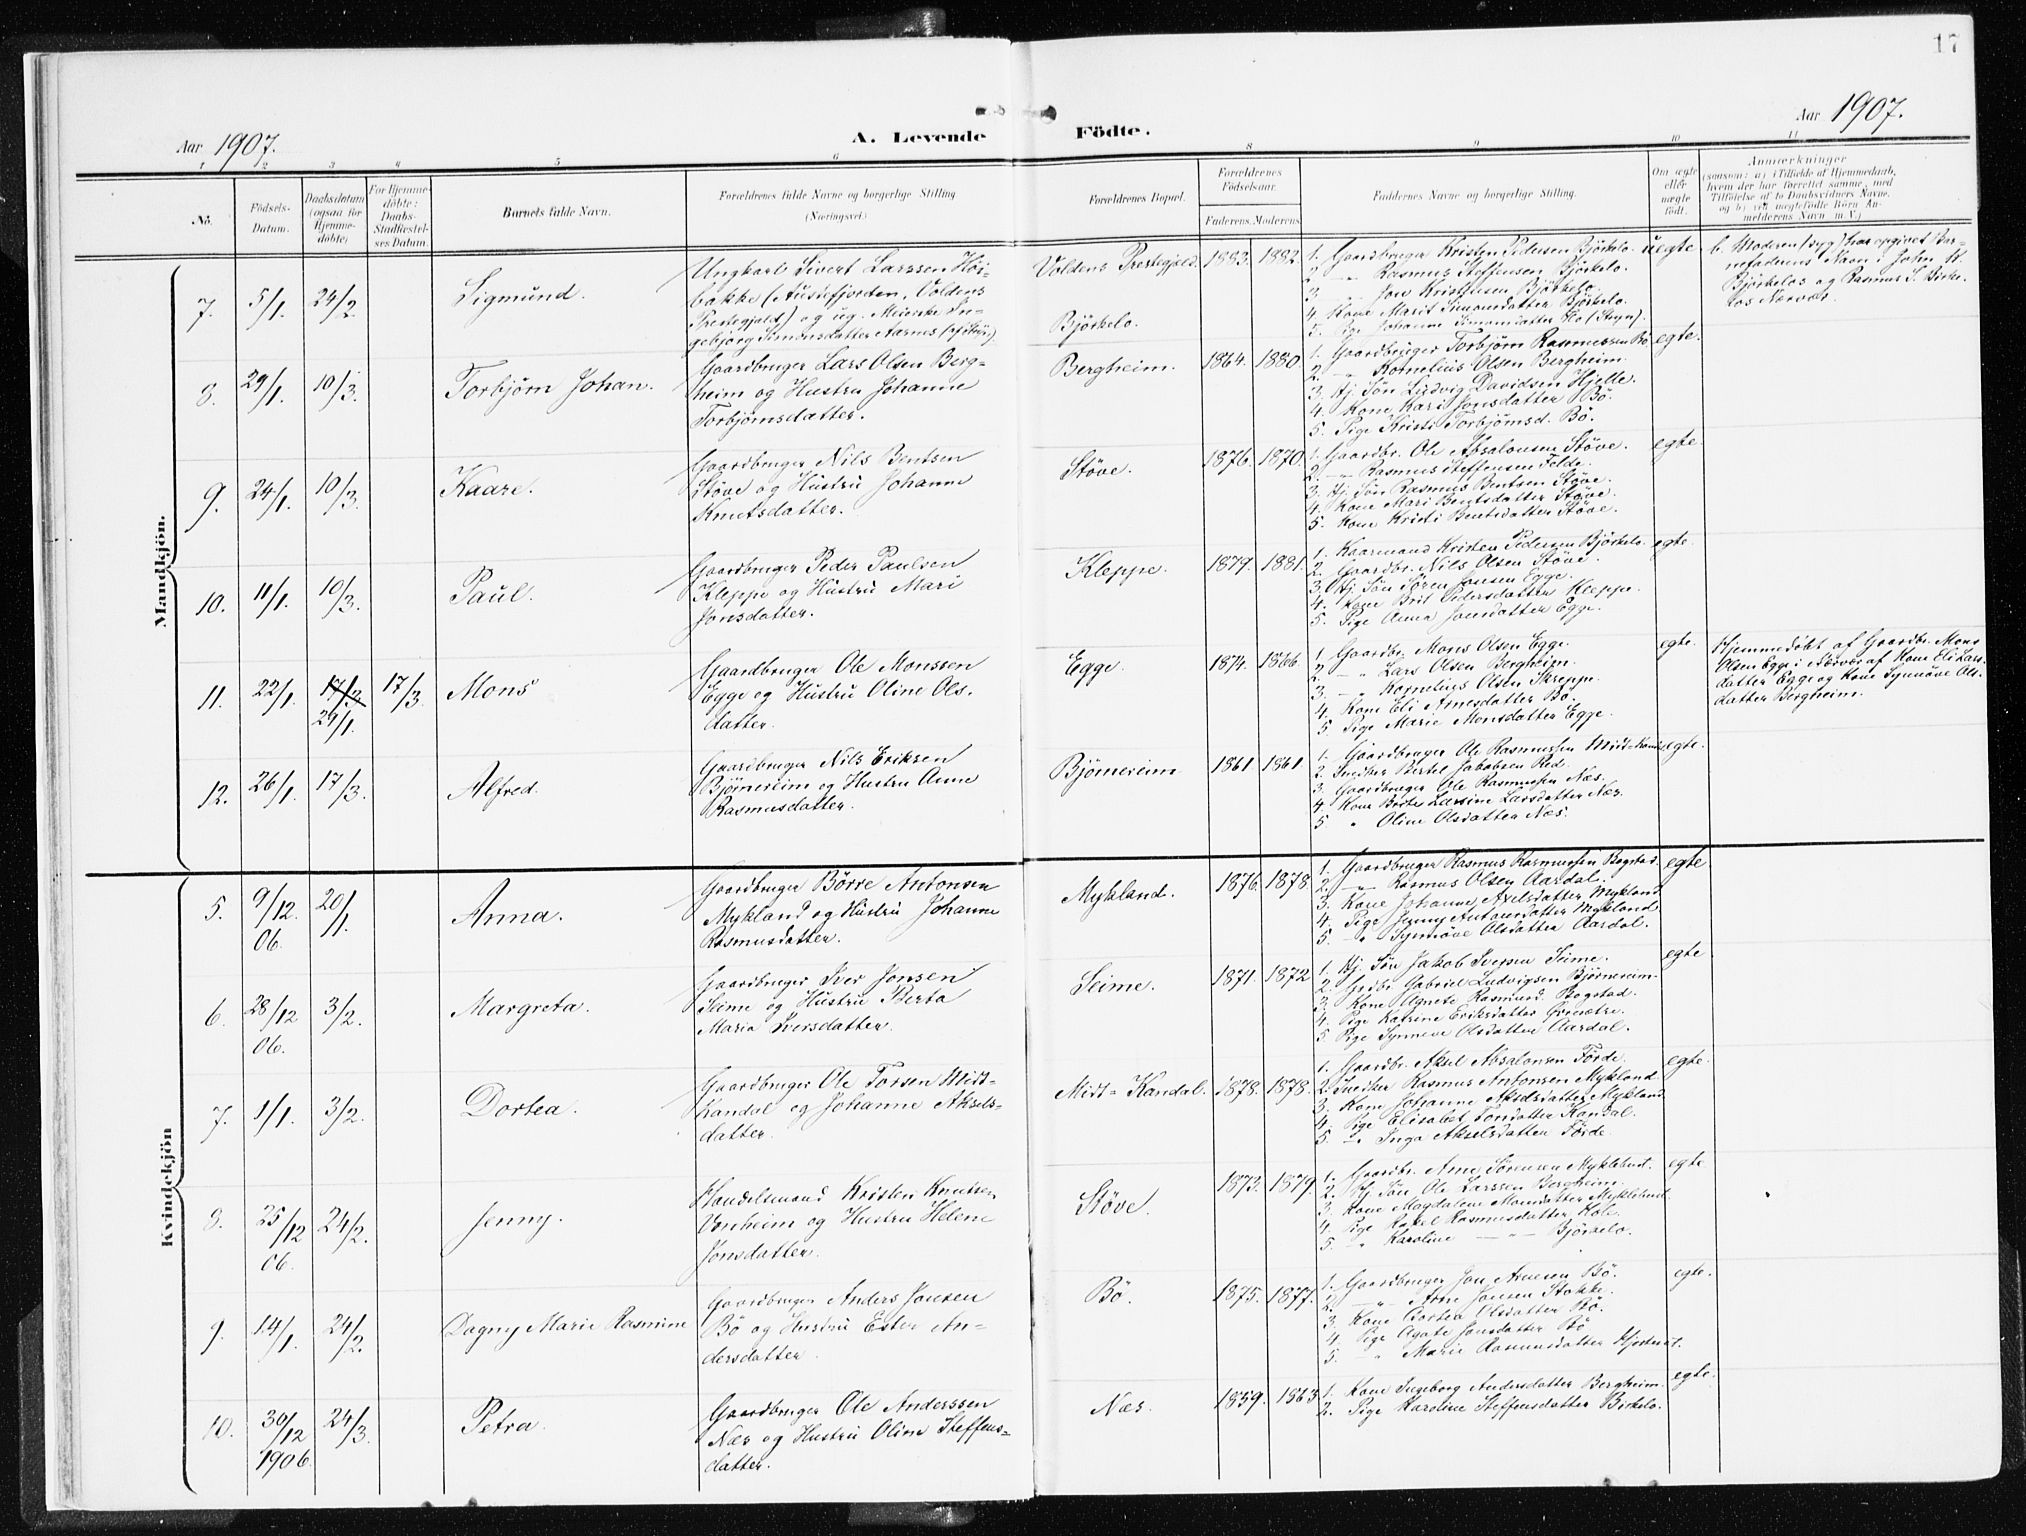 17
Aar 1907.
A. Levende Födte.
Aar 1907.
1 2 3 4 5 6 8 9 10 11
No.
Födsels-Datum.
Daabsdatum (ogsaa for Hjemmedöbte)
For Hjemmedöbte: Daabs-Stadfæstelses Datum.
Barnets fulde Navn.
Forældrenes fulde Navne og borgerlige Stilling (Næringsvei.)
Forældrenes Bopæl.
Forældrenes Födselsaar.
Faderens. Moderens.
Faddernes Navne og borgerlige Stilling.
Om ægte eller uægte födt.
Anmærkninger
(saasom: a) i Tilfælde af Hjemmedaab,
hvem der har forrettet samme, med
Tilföielse af to Daabsvidners Navne.
og b) ved uægtefödte Börn An-
melderens Navn m. V.)
Mandkjön.
7. 5/1 24/2 Sigmund.
Ungkarl Sivert Larssen Höi-
bakke (Austefjorden, Voldens
Prestegjeld) og ug. Meierske In-
gebjörg Simonsdatter Aarnes
Voldens Prestegjeld. 1883. 1882.
Björkelo.
1. Gaardbruger Kristen Pedersen Björkelo.
2. -"- Rasmus Steffensen Björkelo.
3. -"- Jon Kristensen Björkelo.
4. Kone Marit Simonsdatter Björkelo.
5. Pige Johanne Simonsdatter Flo (Stryn).
uegte
b. Moderen (syg) har opgivet Bar-
nefaderens Navn i John K.
Björkelos og Rasmus S. Birke-
los Nærvær.
8. 29/1 10/3. Torbjörn Johan.
Gaardbruger Lars Olsen Berg-
heim og Hustru Johanne
Torbjörnsdatter.
Bergheim. 1864. 1880.
1. Gaardbruger Torbjörn Rasmussen Bö
2. -"- Kornelius Olsen Bergheim.
3. Hj. Sön Ludvig Davidsen Hjelle.
4. Kone Kari Jonsdatter Bö.
5. Pige Kristi Torbjörnsd. Bö.
egte.
9. 24/1 10/3. Kaare.
Gaardbruger Nils Bentsen
Stöve og Hustru Johanne
Knutsdatter.
Stöve. 1876. 1870.
1. Gaardbr. Ole Absalonsen Stöve.
2. -"- Rasmus Steffensen Felde.
3. Hj. Sön Rasmus Bentsen Stöve.
4. Kone Mari Bentsdatter Stöve.
5. Kone Kristi Bentsdatter Stöve.
egte
10. 11/1. 10/3. Paul.
Gaardbruger Peder Paulsen
Kleppe og Hustru Mari
Jonsdatter.
Kleppe. 1879. 1881.
1. Kaarmand Kristen Pedersen Björkelo.
2. Gaardbr. Nils Olsen Stöve.
3. Hj. Sön Sören Jonsen Egge.
4. Kone Brit Pedersdatter Kleppe.
5. Pige Anna Jonsdatter Egge.
egte.
11. 22/1. 17/3 29/1. 17/3 Mons
Gaardbruger Ole Monssen
Egge og Hustru Oline Ols-
datter.
Egge. 1874. 1866.
1. Gaardbr. Mons Olsen Egge.
2. -"- Lars Olsen Bergheim.
3. -"- Kornelius Olsen Skreppe.
4. Kone Eli Arnesdatter Bö.
5. Pige Marie Monsdatter Egge.
egte.
Hjemmedöbt af Gaardbr. Mons
Olsen Egge i Nærvær af Kone Eli Lars-
datter Egge og Kone Synnöve Ols-
datter Bergheim.
12. 26/1. 17/3. Alfred.
Gaardbruger Nils Eriksen
Björnereim og Hustru Anne
Rasmusdatter.
Björnereim 1861 1861
1. Gaardbruger Ole Rasmussen Midt-Kandal
2. Snedker Bertel Jakobsen Red.
3. Gaardbruger Ole Rasmussen Næs.
4. Kone Berte Larsine Larsdatter Næs.
5. " Oline Olsdatter Næs.
egte.
Kvindekjön
5. 9/12. 06. 20/1. Anna.
Gaardbruger Börre Antonsen
Mykland og Hustru Johanne
Rasmusdatter.
Mykland. 1876. 1878.
1. Gaardbruger Rasmus Rasmussen Bogstad.
2. -"- Rasmus Olsen Aardal.
3. Kone Johanne Axelsdatter Mykland
4. Pige Jenny Antonsdatter Mykland.
5. -"- Synnöve Olsdatter Aardal.
egte
6. 28/12 06. 3/2. Margreta.
Gaardbruger Iver Jonsen
Seime og Hustru Berta
Maria Iversdatter.
Seime. 1871. 1872
1. Hj. Sön Jakob Iversen Seime.
2. Grdbr. Gabriel Ludvigsen Björnereim.
3. Kone Agnete Rasmusd. Bogstad.
4. Pige Katrine Eriksdatter
5. Pige Synneve Olsdatter Aardal.
egte.
7. 1/1. 3/2. Dortea.
Gaardbruger Ole Torsen Midt-
kandal og Johanne Aksels-
datter.
Midt-Kandal. 1878. 1878.
1. Gaardbr. Aksel Absalonsen Förde.
2. Snedker Rasmus Antonsen Mykland
3. Kone Johanne Akselsdatter Mykland
4. Pige Elisabet Torsdatter Kandal.
5. -"- Inga Akselsdatter Förde.
egte.
8. 25/12 06. 24/2. Jenny.
Handelsmand Kristen Knutsen
Vonheim og Hustru Helene
Jonsdatter.
Stöve. 1873. 1879.
1. Gaardbr. Arne Sörensen Myklebust.
2. Hj. Sön Ole Larssen Bergheim.
3. Kone Magdalene Monsdatter Myklebust
4. Pige Rakel Rasmusdatter Hole.
5. -"- Karoline -"- Björkelo.
egte
9. 14/1. 24/2. Dagny Marie Rasmine
Gaardbruger Anders Jonsen
Bö og Hustru Ester An-
dersdatter.
Bö. 1875. 1877.
1. Gaardbruger Jon Arnesen Bö.
2. -"- Arne Jonsen Stokke.
3. Kone Dortea Olsdatter Bö.
4. Pige Agate Jonsdatter Bö
5. -"- Marie Rasmusdatter
egte.
10. 30/12 1906. 24/3. Petra.
Gaardbruger Ole Anderssen
Næs og Hustru Oline Steffens-
datter.
Næs. 1859. 1863
1. Kone Ingeborg Andersdatter Bergheim.
2. Pige Karoline Steffensdatter Birkelo.
egte.